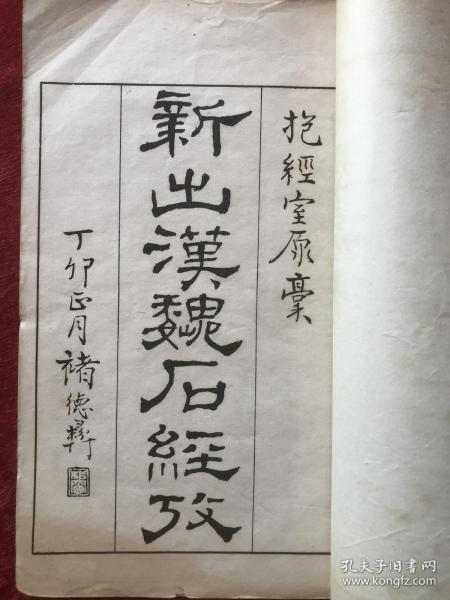 抱經室原稾
新出漢魏石經攷
丁卯正月褚德彝
孔夫子旧书网
www.kongfz.com